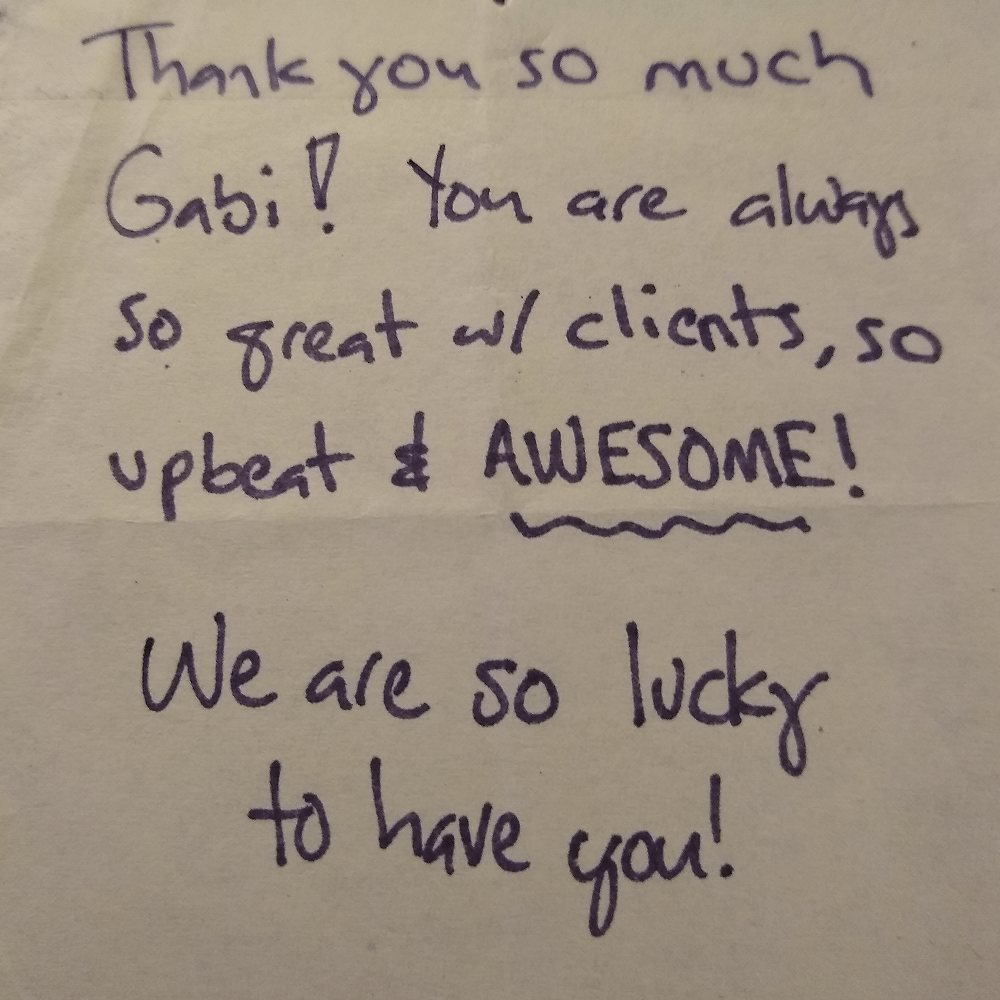 Thank you so much
Gabi! You are always
so great w/ clients, so
upbeat & AWESOME!
We are so lucky
to have you!